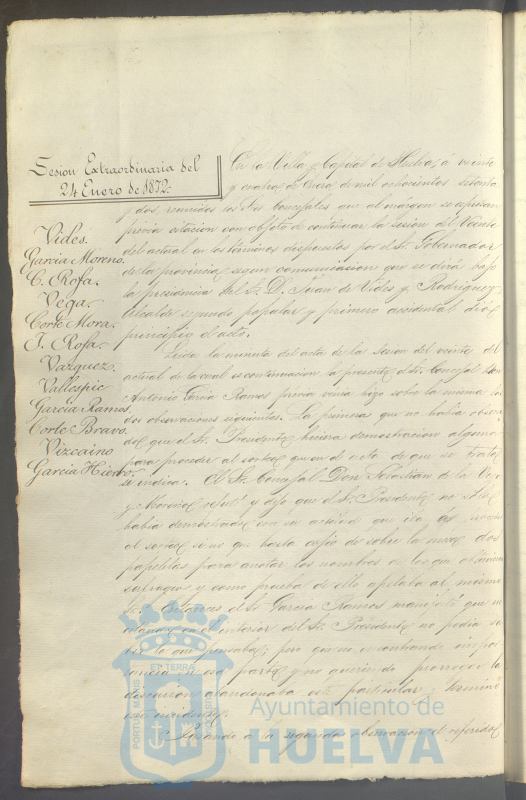 Sesion Extraordinaria del
24 Enero de 1872.
Vides.
Garcia Moreno.
C. Rofa.
Vega.
Corte Mora.
J. Rofa.
Vazquez.
Vallespie
Garcia Ramos.
Corte Bravo.
Vizcaino
Garcia Hierro.
En la Villa y Capital de Huelva, á veinte
y cuatro de Enero de mil ochocientos setenta
y dos, reunidos los Sres Concejales que al margen se espresan
previa citacion con objeto de continuar la sesion del Veinte
del actual en los términos dispuestos por el Sr. Gobernador
de la provincia segun comunicacion que se dirá bajo
la presidencia del Sr. D. Juan de Vides y Rodriguez
Alcalde segundo popular y primero accidental dió
principio el acto.
Leida la minuta del acta de la sesion del veinte del
actual de la cual es continuacion la presente el Sr. Concejal Don
Antonio Garcia Ramos previa venia hizo sobre la misma las
dos observaciones siguientes. La primera que no habia obser-
vado que el Sr. Presidente hiciera demostracion alguna
para proceder al sorteo que en el acta de que se trata
se indica. El Sr. Concejal Don Sebastian de la Vega
y dijo que el Sr. Presidente no solo
habia demostrado con su actitud que iba
al sorteo sino que hasta cojió de sobre la mesa dos
papeletas para anotar los nombres de los que obtuvieron
sufragios y como prueba de ello apelaba al mismo
Sr. Entonces el Sr. Garcia Ramos manifestó que no
estando en el interior del Sr. Presidente no podia sa-
ber lo que pensaba; pero que no encontrando impor-
tancia en esa parte y no queriendo prorrogar la
discusion abandonaba este particular; terminó
este incidente.
Pasando á la segunda observacion el referido
PORTUS MARIS
ET TERRÆ
CUSTODIA
Ayuntamiento de
HUELVA